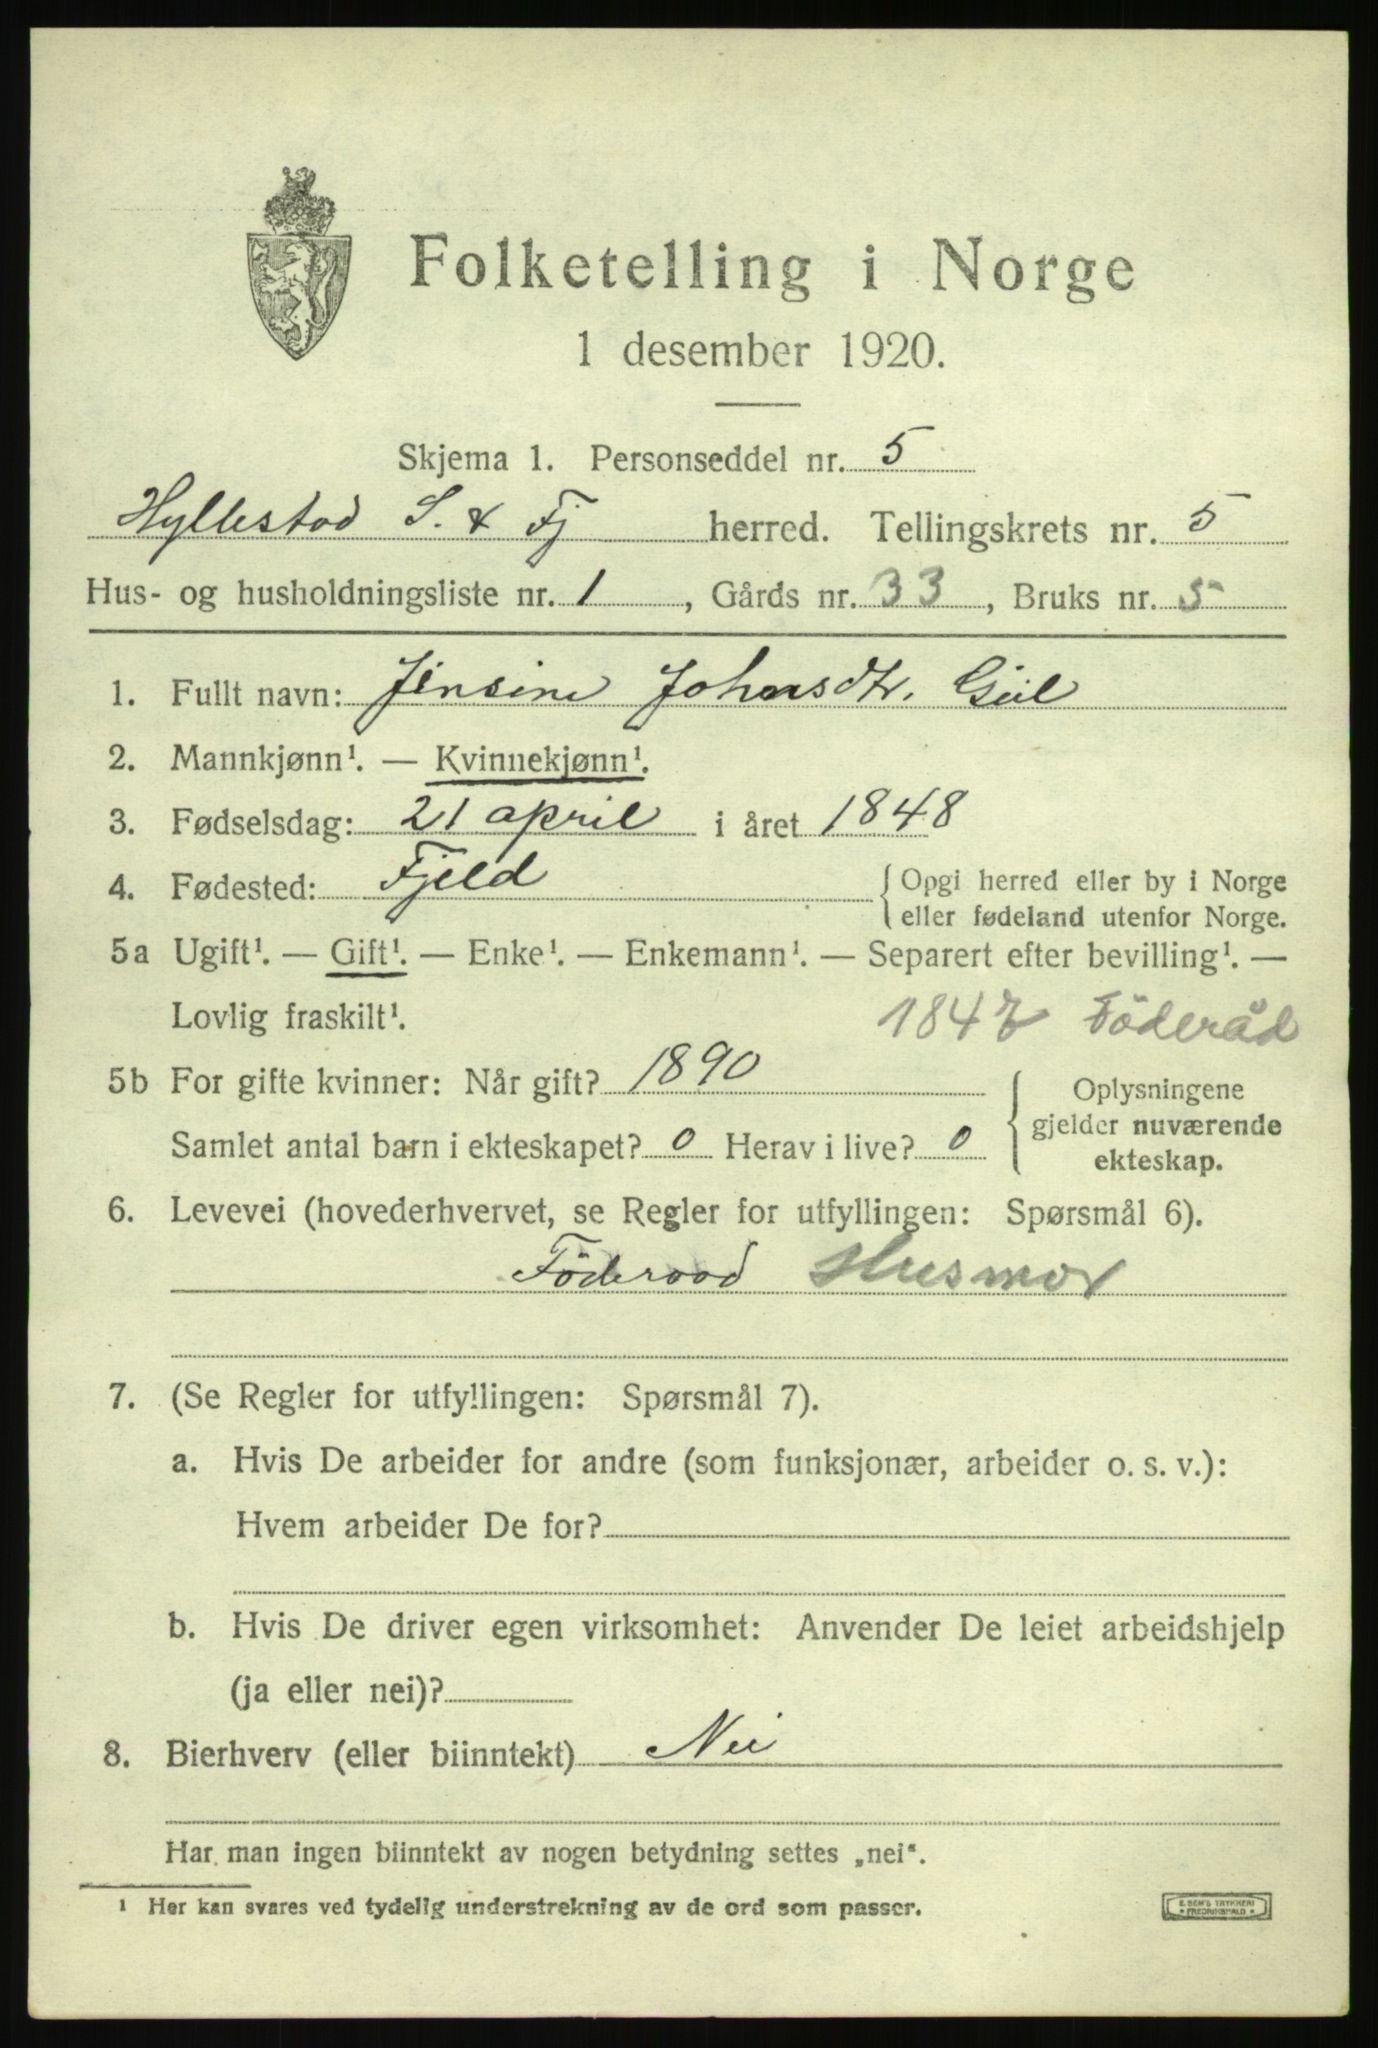 Folketelling i Norge
1 desember 1920.
Skjema 1. Personseddel nr. 5
Hyllestad S. & Fj herred. Tellingskrets nr. 5
Hus- og husholdningsliste nr. 1, Gårds nr. 33, Bruks nr. 5
1. Fullt navn: Jensine Johnsdtr. Geil
2. Mannkjønn¹. — Kvinnekjønn¹.
3. Fødselsdag: 21 april i året 1848
4. Fødested: Fjeld { Opgi herred eller by i Norge
eller fødeland utenfor Norge.
5a Ugift¹. — Gift¹. — Enke¹. — Enkemann¹. — Separert efter bevilling¹. —
Lovlig fraskilt¹. 1847 Föderåd
5b For gifte kvinner: Når gift? 1890
Samlet antal barn i ekteskapet? 0 Herav i live? 0
{ Oplysningene
gjelder nuværende
ekteskap.
6. Levevei (hovederhvervet, se Regler for utfyllingen: Spørsmål 6).
Föderaad Husmor
7. (Se Regler for utfyllingen: Spørsmål 7).
a. Hvis De arbeider for andre (som funksjonær, arbeider o. s. v.):
Hvem arbeider De for?
b. Hvis De driver egen virksomhet: Anvender De leiet arbeidshjelp
(ja eller nei)?
8. Bierhverv (eller biinntekt) Nei
Har man ingen biinntekt av nogen betydning settes „nei“.
¹ Her kan svares ved tydelig understrekning av de ord som passer.
E. SEM'S TRYKKERI
FREDRIKSHALD